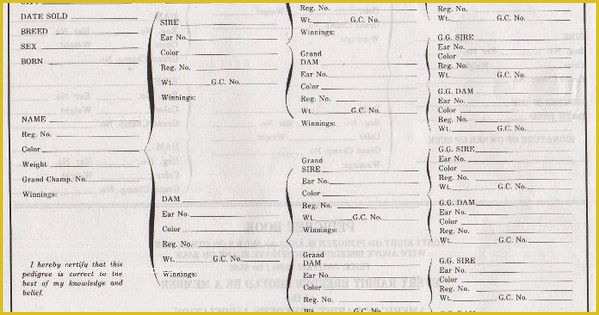 DATE SOLD
BREED
SEX
BORN
NAME
Reg. No.
Color
Weight
Grand Champ. No.
Winnings:
I hereby certify that this
pedigree is correct to the
best of my knowledge and
belief.
SIRE
Ear No.
Color
Reg. No.
Wt. G.C. No.
Winnings:
DAM
Ear No.
Color
Reg. No.
Wt. G.C. No.
Winnings:
Reg. No.
Wt. G.C. No.
Winnings:
Grand
DAM
Ear No.
Color
Reg. No.
Wt. G.C. No.
Winnings:
Grand
SIRE
Ear No.
Color
Reg. No.
Wt. G.C. No.
Winnings:
Grand
DAM
Ear No.
Color
Reg. No.
Wt. G.C. No.
Color
Reg. No.
G.G. SIRE
Ear No.
Color
Reg. No.
G.G. DAM
Ear No.
Color
Reg. No.
G.G. SIRE
Ear No.
Color
Reg. No.
G.G. DAM
Ear No.
Color
Reg. No.
G.G. SIRE
Ear No.
Color
Reg. No.
G.G. DAM